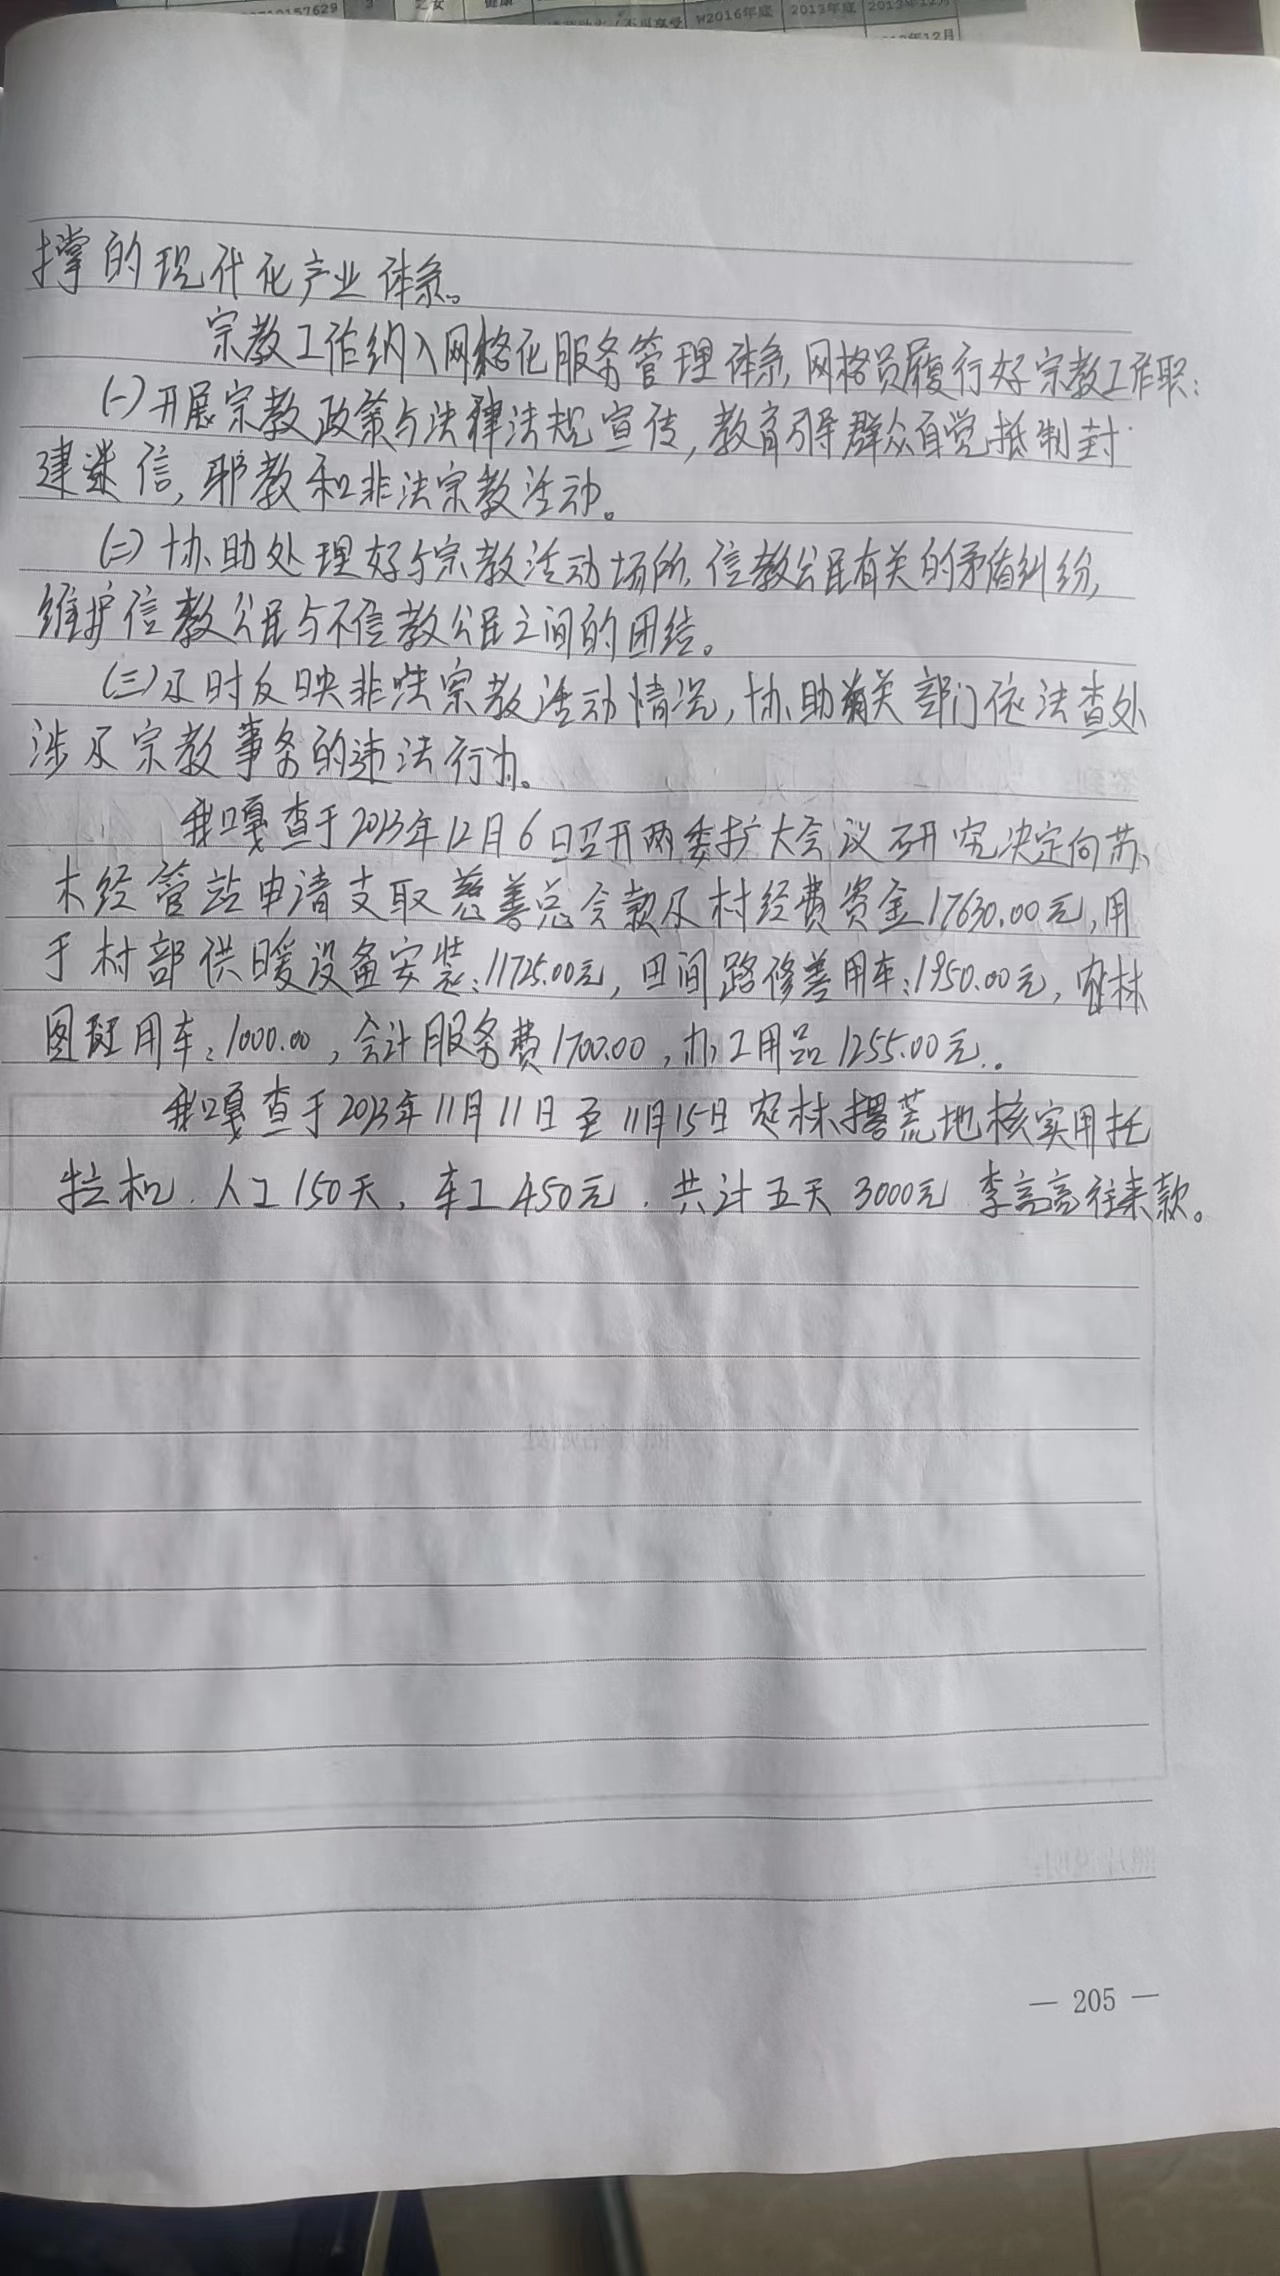 10157629 3 乙女 健康
W2016年底 2013年底 2013年12月
撑的现代化产业体系。
宗教工作纳入网格化服务管理体系,网格员履行好宗教工作职:
(一)开展宗教政策与法律法规宣传,教育引导群众自觉抵制封
建迷信,邪教和非法宗教活动。
(二)协助处理好与宗教活动场所、信教公民有关的矛盾纠纷,
维护信教公民与不信教公民之间的团结。
(三)及时反映非法宗教活动情况,协助有关部门依法查处
涉及宗教事务的违法行为。
我嘎查于2023年12月6日召开两委扩大会议研究决定向苏
木经管站申请支取慈善总会款及村经费资金17630.00元,用
于村部供暖设备安装:11725.00元,田间路修善用车:1950.00元,农林
图斑用车:1000.00,会计服务费1700.00,办工用品1255.00元.
我嘎查于2023年11月11日至11月15日农林撂荒地核实用托
拉机.人工150天,车工450元.共计五天3000元 李亮亮往来款。
— 205 —